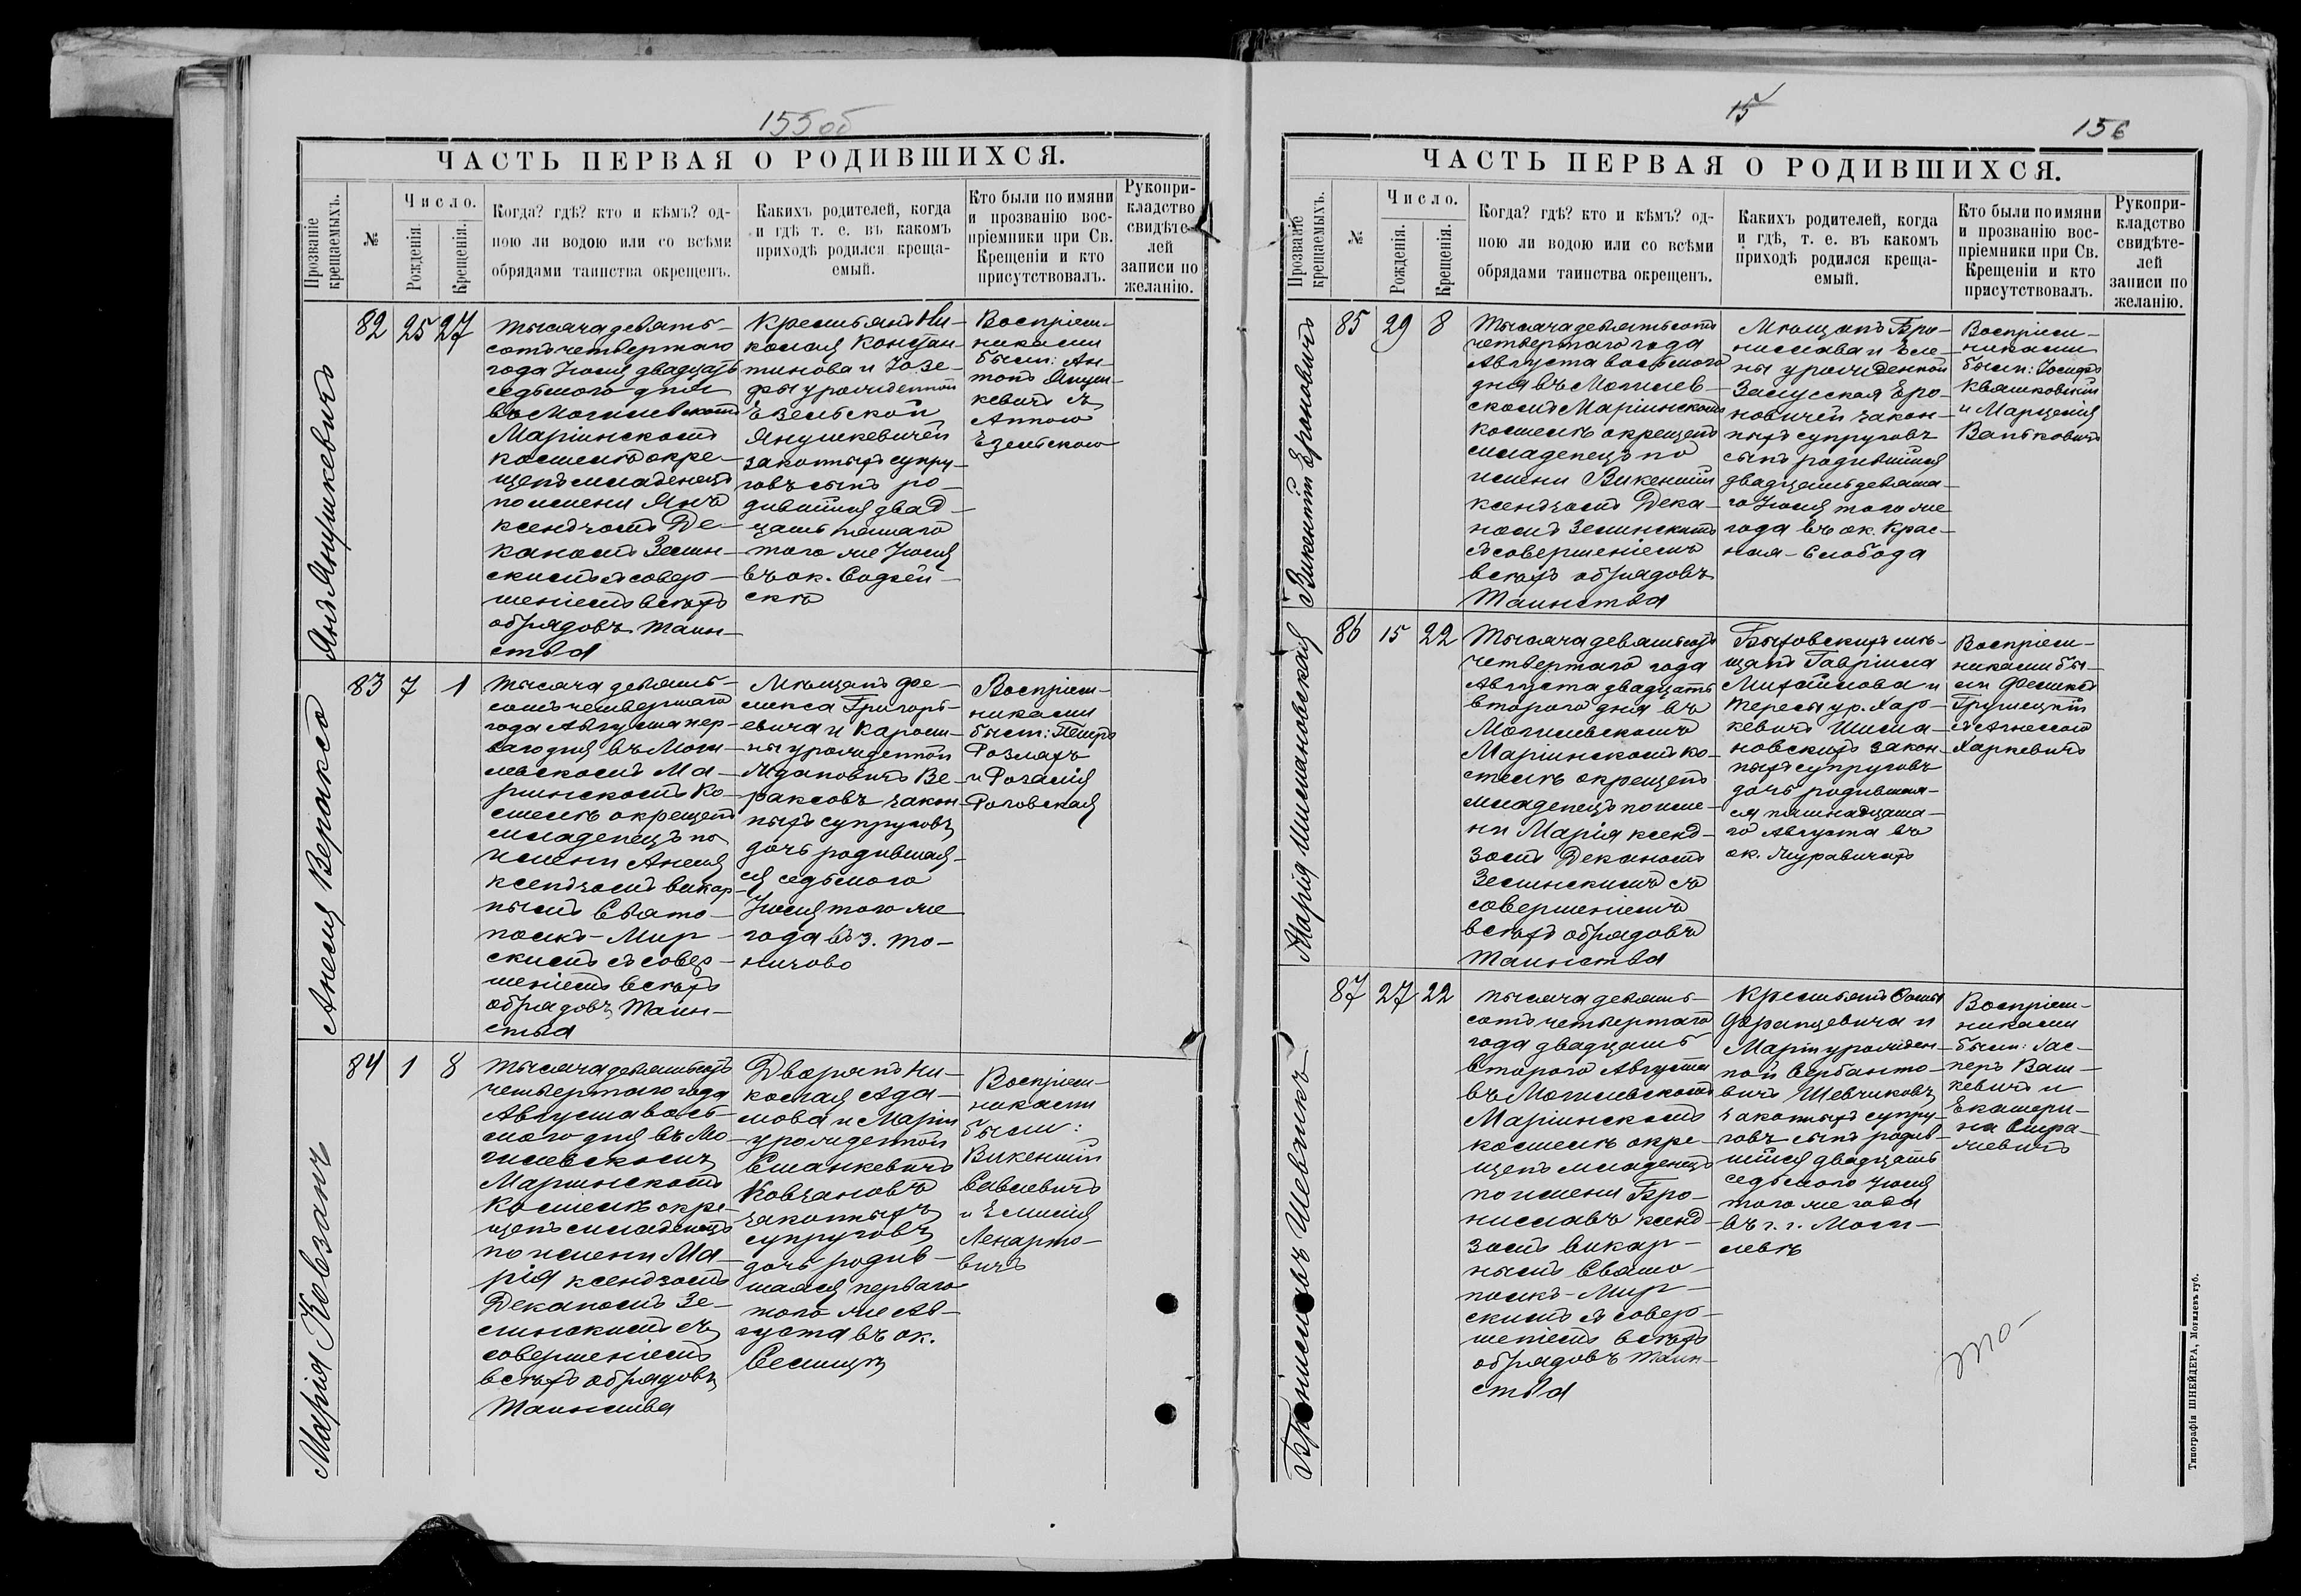 155об
ЧАСТЬ ПЕРВАЯ О РОДИВШИХСЯ.
Прозваніе крещаемыхъ.
№
Число.
Рожденія.
Крещенія.
Когда? гдѣ? кто и кѣмъ? од-
ною ли водою или со всѣми
обрядами таинства окрещенъ.
Какихъ родителей, когда
и гдѣ т. е. въ какомъ
приходѣ родился креща-
емый.
Кто были по имяни
и прозванію вос-
пріемники при Св.
Крещеніи и кто
присутствовалъ.
Рукопри-
кладство
свидѣте-
лей
записи по
желанію.
Янъ Янушкевичъ
82 25 27
Тысяча девять-
сотъ четвертаго
года Іюля двадцать
седьмого дня
въ Могилевскомъ
Маріинскомъ
костелѣ окре-
щенъ младенецъ
по имени Янъ
ксендзомъ Де-
каномъ Земин-
скимъ съ совер-
шеніемъ всѣхъ
обрядовъ Таин-
ства
Крестьянъ Ни-
колая Констан-
тинова и Іозе-
фы урожденной
Езельской
Янушкевичей
законныхъ супру-
говъ сынъ ро-
дившійся двад-
цать пятаго
того же Іюля
въ ок.
Воспріем-
никами
были: Ан-
тонъ Януш-
кевичъ съ
Анною
Езельскою
Анеля Вераксо
83 7 1
Тысяча девять-
сотъ четвертаго
года Августа пер-
ваго дня въ Моги-
левскомъ Ма-
ріинскомъ Ко-
стелѣ окрещенъ
младенецъ по
имени Анеля
ксендзомъ викар-
нымъ Свято-
полкъ-Мир-
скимъ съ совер-
шеніемъ всѣхъ
обрядовъ Таин-
ства
Мѣщанъ Фе-
ликса Григорь-
евича и Кароли-
ны урожденной
Ждановичъ Ве-
раксовъ закон-
ныхъ супруговъ
дочь родившая-
ся седьмого
Іюля того же
года въ з. То-
ничово
Воспріем-
никами
были: Петръ
Розмахъ
и Розалія
Роговская
Марія Ковзанъ
84 1 8
Тысяча девятьсотъ
четвертаго года
Августа вось-
мого дня въ Мо-
гилевскомъ
Маріинскомъ
Костелѣ окре-
щенъ младенецъ
по имени Ма-
рія ксендзомъ
Деканомъ Зе-
минскимъ съ
совершеніемъ
всѣхъ обрядовъ
Таинства
Дворянъ Ни-
колая Ада-
мова и Маріи
урожденной
Станкевичъ
Ковзановъ
законныхъ
супруговъ
дочь родив-
шаяся перваго
того же Ав-
густа въ ок.
Воспріем-
никами
были:
Викентій
Савлевичъ
и Эмилія
Ленарто-
вичъ
15
156
ЧАСТЬ ПЕРВАЯ О РОДИВШИХСЯ.
Прозваніе крещаемыхъ.
№
Число.
Рожденія.
Крещенія.
Когда? гдѣ? кто и кѣмъ? од-
ною ли водою или со всѣми
обрядами таинства окрещенъ.
Какихъ родителей, когда
и гдѣ, т. е. въ какомъ
приходѣ родился креща-
емый.
Кто были по имяни
и прозванію вос-
пріемники при Св.
Крещеніи и кто
присутствовалъ.
Рукопри-
кладство
свидѣте-
лей
записи по
желанію.
Викентій Ероновичъ
85 29 8
Тысяча девятьсотъ
четвертаго года
Августа восьмого
дня въ Могилев-
скомъ Маріинскомъ
костелѣ окрещенъ
младенецъ по
имени Викентій
ксендзомъ Дека-
номъ Земинскимъ
съ совершеніемъ
всѣхъ обрядовъ
Таинства
Мѣщанъ Бро-
нислава и Еле-
ны урожденной
Еро-
новичей закон-
ныхъ супруговъ
сынъ родившійся
двадцать девята-
го Іюля того же
года въ ок. Крас-
ная-Слобода
Воспріем-
никами
были: Іосифъ
Квятковскій
и Марцелія
Ваньковичъ
Марія Шимановская
86 15 22
Тысяча девятьсотъ
четвертаго года
Августа двадцать
второго дня въ
Могилевскомъ
Маріинскомъ ко-
стелѣ окрещенъ
младенецъ по име-
ни Марія ксенд-
зомъ Деканомъ
Земинскимъ съ
совершеніемъ
всѣхъ обрядовъ
Таинства
Быховскихъ мѣ-
щанъ Гавріила
Михайлова и
Тересы ур. Хар-
кевичъ Шима-
новскихъ закон-
ныхъ супруговъ
дочь родившая-
ся пятнадцата-
го Августа въ
ок. Журавичахъ
Воспріем-
никами бы-
ли Феликсъ
Грушецкій
съ Агнессою
Харкевичъ
Брониславъ Шевчикъ
87 27 22
Тысяча девять-
сотъ четвертаго
года двадцать
второго Августа
въ Могилевскомъ
Маріинскомъ
костелѣ окре-
щенъ младенецъ
по имени Бро-
ниславъ ксенд-
зомъ викар-
нымъ Свято-
полкъ-Мир-
скимъ съ совер-
шеніемъ всѣхъ
обрядовъ Таин-
ства
Крестьянъ
Францевича и
Маріи урожден-
ной Сербанто-
вичъ Шевчиковъ
законныхъ супру-
говъ сынъ родив-
шійся двадцать
седьмого Іюля
того же года
въ г. г. Моги-
левѣ
Воспріем-
никами
были: Кас-
перъ Ваш-
кевичъ и
Екатери-
на Сира-
жевичъ
Типографія ШНЕЙДЕРА, Могилевъ губ.